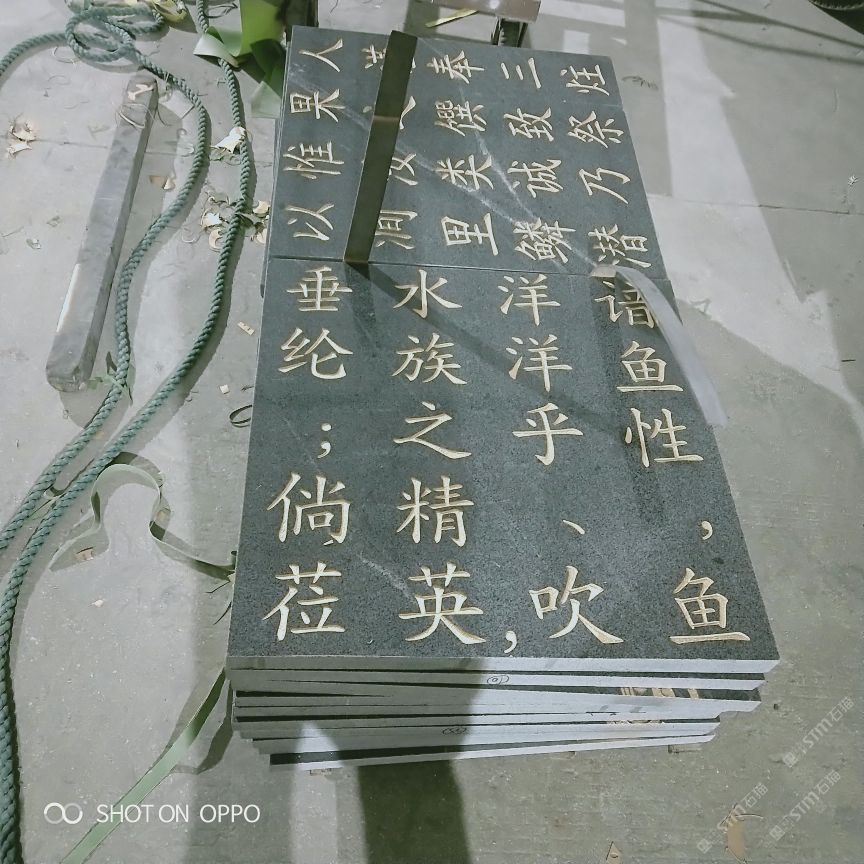 炷祭乃潜
三致诚鳞
奉馔类里
人果惟以
谙鱼性，鱼
洋洋乎、吹
水族之精英，
垂纶；倘莅
SHOT ON OPPO